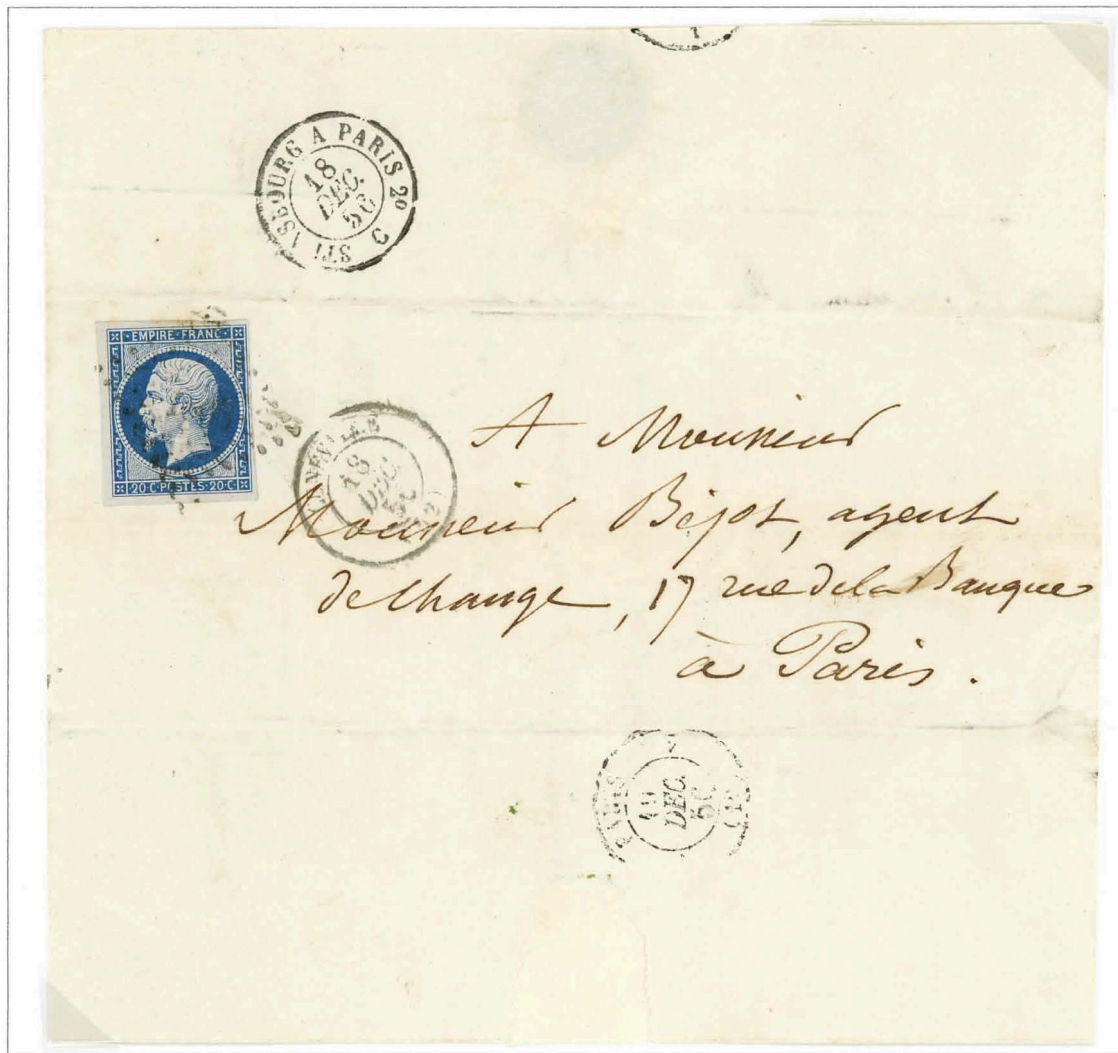 STRASBOURG A PARIS 2º
18
DEC.
56
C
EMPIRE FRANC
20 C POSTES 20 C
18
DEC
A Monsieur
Monsieur Béjot, agent
de change, 17 rue de la Banque
à Paris.
PARIS
19
DEC.
56